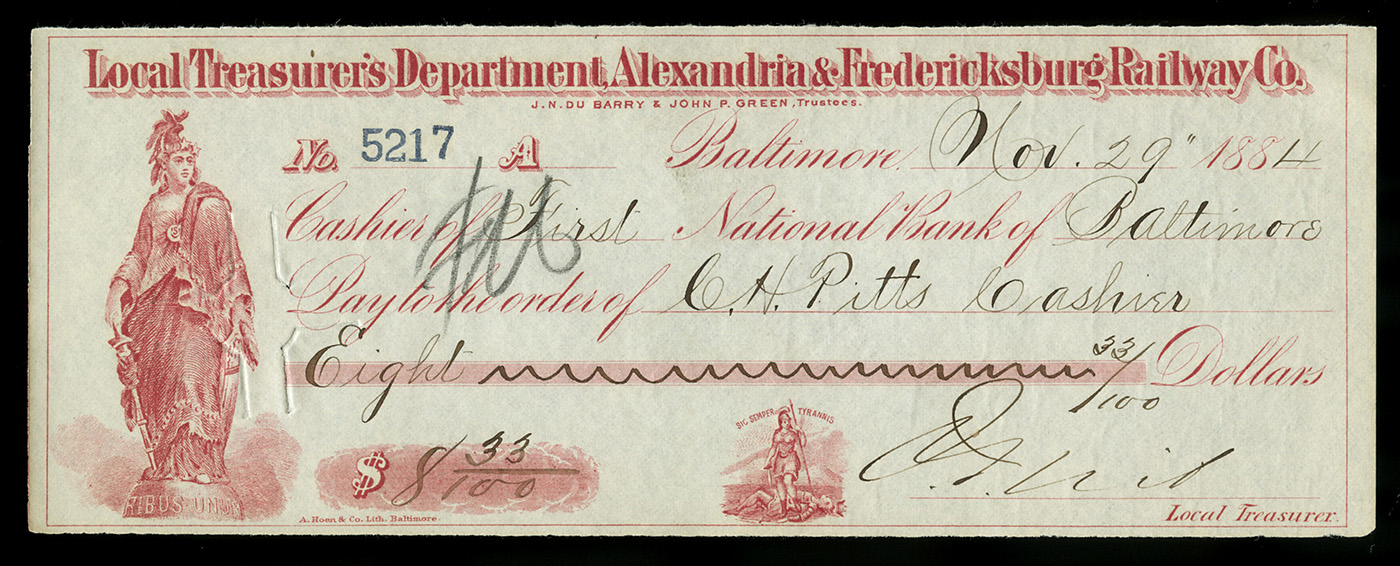 Local Treasurer's Department, Alexandria & Fredericksburg Railway Co.
J. N. DU BARRY & JOHN P. GREEN, Trustees.
No. 5217 A Baltimore, Nov. 29" 1884
Cashier of First National Bank of Baltimore
Pay to the order of C. H. Pitts Cashier
Eight 33/100 Dollars
SIC SEMPER TYRANNIS
$ 8 33/100
RIBUS UNUM
Local Treasurer.
A. Hoen & Co. Lith. Baltimore.